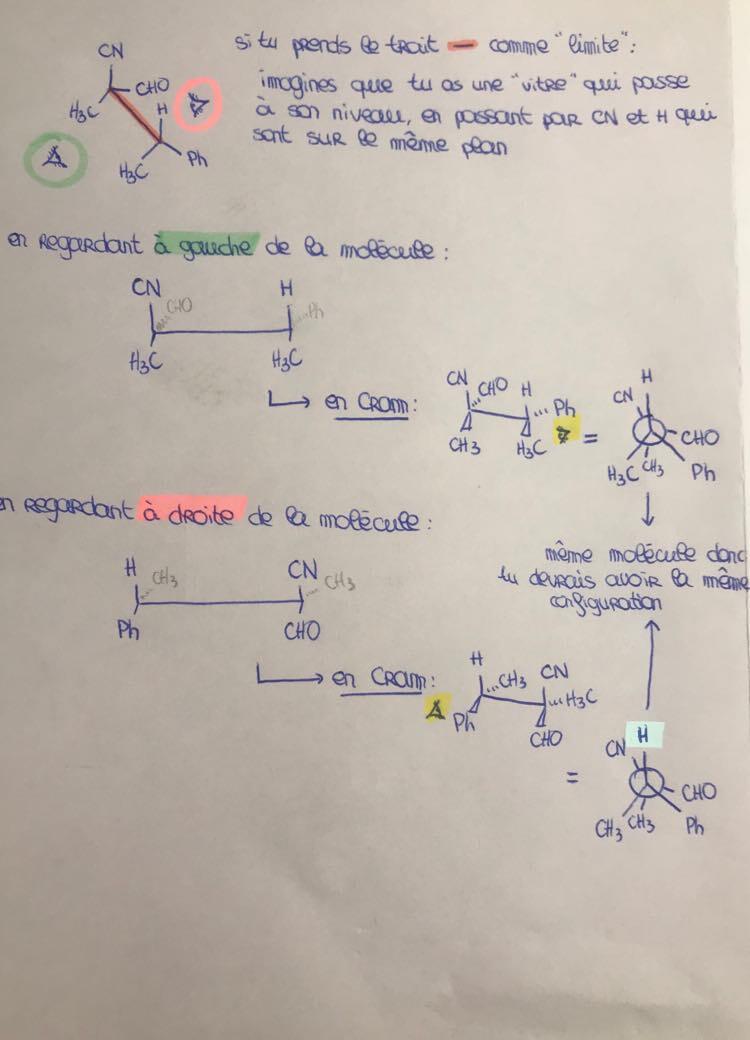 CN
CHO
H
H3C
H3C
Ph
si tu prends le trait — comme "limite":
imagines que tu as une "vitre" qui passe
à son niveau, en passant par CN et H qui
sont sur le même plan
en regardant à gauche de la molécule :
CN
CHO
H
Ph
H3C
H3C
en Cram:
CN
CHO
H
Ph
CH3
H3C
=
H
CN
CHO
H3C
CH3
Ph
en regardant à droite de la molécule :
H
CH3
CN
CH3
Ph
CHO
même molécule donc
tu devrais avoir la même
configuration
en Cram:
H
CH3
CN
H3C
Ph
CHO
=
CN
H
CHO
CH3
CH3
Ph